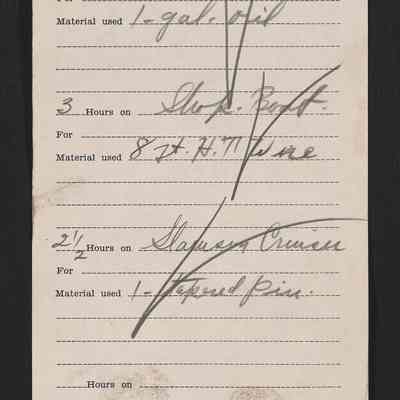 For
Material used 1 - gal. oil
3 Hours on Shop. Boat.
For
Material used 8 ft. H. T. Wire
2 1/2 Hours on Cruiser
For
Material used 1 - Tapered Pin.
Hours on